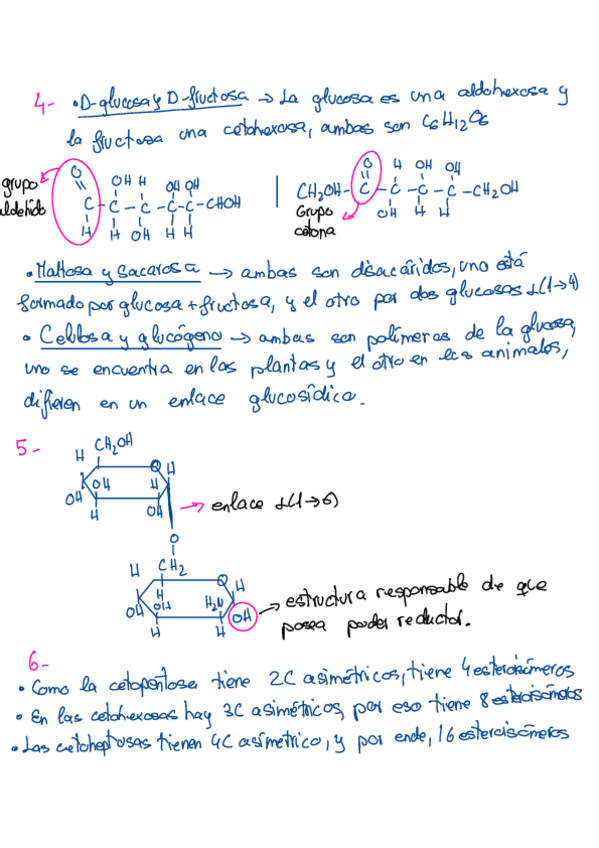 4- •D-glucosa y D-fructosa → La glucosa es una aldohexosa y
la fructosa una cetohexosa, ambas son C6H12O6
grupo aldehído
O OH H OH OH
C-C-C-C-C-CHOH
H H OH H H
O H OH OH
CH2OH-C-C-C-C-CH2OH
OH H H
Grupo cetona
• Maltosa y Sacarosa → ambas son disacáridos, uno está
formado por glucosa + fructosa, y el otro por dos glucosas α(1→4)
• Celulosa y glucógeno → ambas son polímeros de la glucosa,
uno se encuentra en las plantas y el otro en los animales,
difieren en un enlace glucosídico.
5-
CH2OH
H O H
OH H
OH OH
H
→ enlace α(1→6)
O
H CH2
O H
H
OH OH H2N OH
H H
→ estructura responsable de que
posea poder reductor.
6-
• Como la cetopentosa tiene 2C asimétricos, tiene 4 esteroisómeros
• En las cetohexosas hay 3C asimétricos, por eso tiene 8 esteroisómeros
• Las cetoheptosas tienen 4C asímetrico, y por ende, 16 esteroisómeros